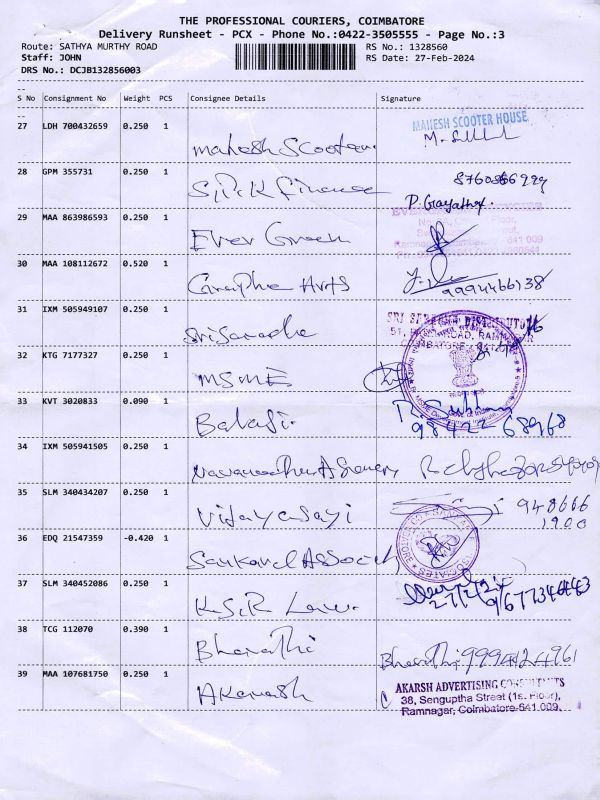 THE PROFESSIONAL COURIERS, COIMBATORE
Delivery Runsheet - PCX - Phone No.:0422-3505555 - Page No.:3
Route: SATHYA MURTHY ROAD RS No.: 1328560
Staff: JOHN RS Date: 27-Feb-2024
DRS No.: DCJB132856003
S No Consignment No Weight PCS Consignee Details Signature
MAHESH SCOOTER HOUSE
27 LDH 700432659 0.250 1 Mahesh Scooter
28 GPM 355731 0.250 1 S.P.K Finance
P. Gayathri
29 MAA 863986593 0.250 1 Ever Green
Ramnagar, Coimbatore - 641 009
30 MAA 108112672 0.520 1 Graphe Arts
31 IXM 505949107 0.250 1 Sri Saradha
COIMBATORE
32 KTG 7177327 0.250 1 MSME
33 KVT 3020833 0.090 1 Balaji
98422 68968
34 IXM 505941505 0.250 1
35 SLM 340434207 0.250 1 Vijayasayi 948666
1900
36 EDQ 21547359 -0.420 1 Sankaral Associ
37 SLM 340452086 0.250 1 K.S.R Law
38 TCG 112070 0.390 1 Bharathi Bharathi 9994124961
39 MAA 107681750 0.250 1 Akarash
AKARSH ADVERTISING CONSULTANTS
38, Senguptha Street (1st Floor),
Ramnagar, Coimbatore-641 009.